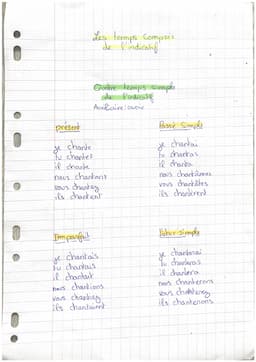 Les temps composés
de l'indicatif
Quatre temps simple
de l'indicatif
Auxiliaire : avoir
présent
je chante
tu chantes
il chante
nous chantons
vous chantez
ils chantent
Passé Simple
je chantai
tu chantas
il chanta
nous chantâmes
vous chantâtes
ils chantèrent
Imparfait
je chantais
tu chantais
il chantait
nous chantions
vous chantiez
ils chantaient
Futur simple
je chanterai
tu chanteras
il chantera
nous chanterons
vous chanterez
ils chanterons